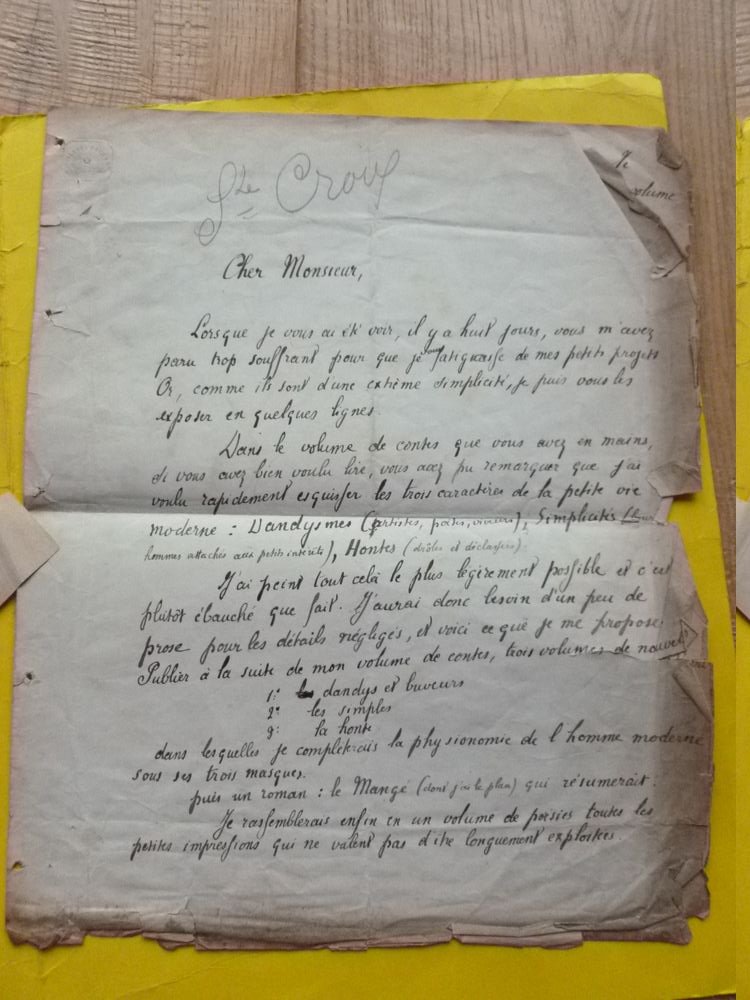 Ste Croix
Je
volume
Cher Monsieur,
Lorsque je vous ai été voir, il y a huit jours, vous m'avez
paru trop souffrant pour que je vous fatiguasse de mes petits projets
Or, comme ils sont d'une extrême simplicité, je puis vous les
exposer en quelques lignes.
Dans le volume de contes que vous avez en mains,
si vous avez bien voulu lire, vous avez pu remarquer que j'ai
voulu rapidement esquisser les trois caractères de la petite vie
moderne : Dandysmes (artistes, poètes, viveurs), Simplicités
hommes attachés aux petits intérêts), Hontes (drôles et déclassés).
J'ai peint tout celà le plus légèrement possible et c'est
plutôt ébauché que fait. J'aurai donc besoin d'un peu de
prose pour les détails négligés, et voici ce que je me propose:
Publier à la suite de mon volume de contes, trois volumes de nouvel
1º les dandys et buveurs
2º les simples
3º la honte
dans lesquelles je complèterais la physionomie de l'homme moderne
sous ses trois masques.
puis un roman : le Mangé (dont j'ai le plan) qui résumerait.
Je rassemblerais enfin en un volume de poésies toutes les
petites impressions qui ne valent pas d'être longuement exploitées.